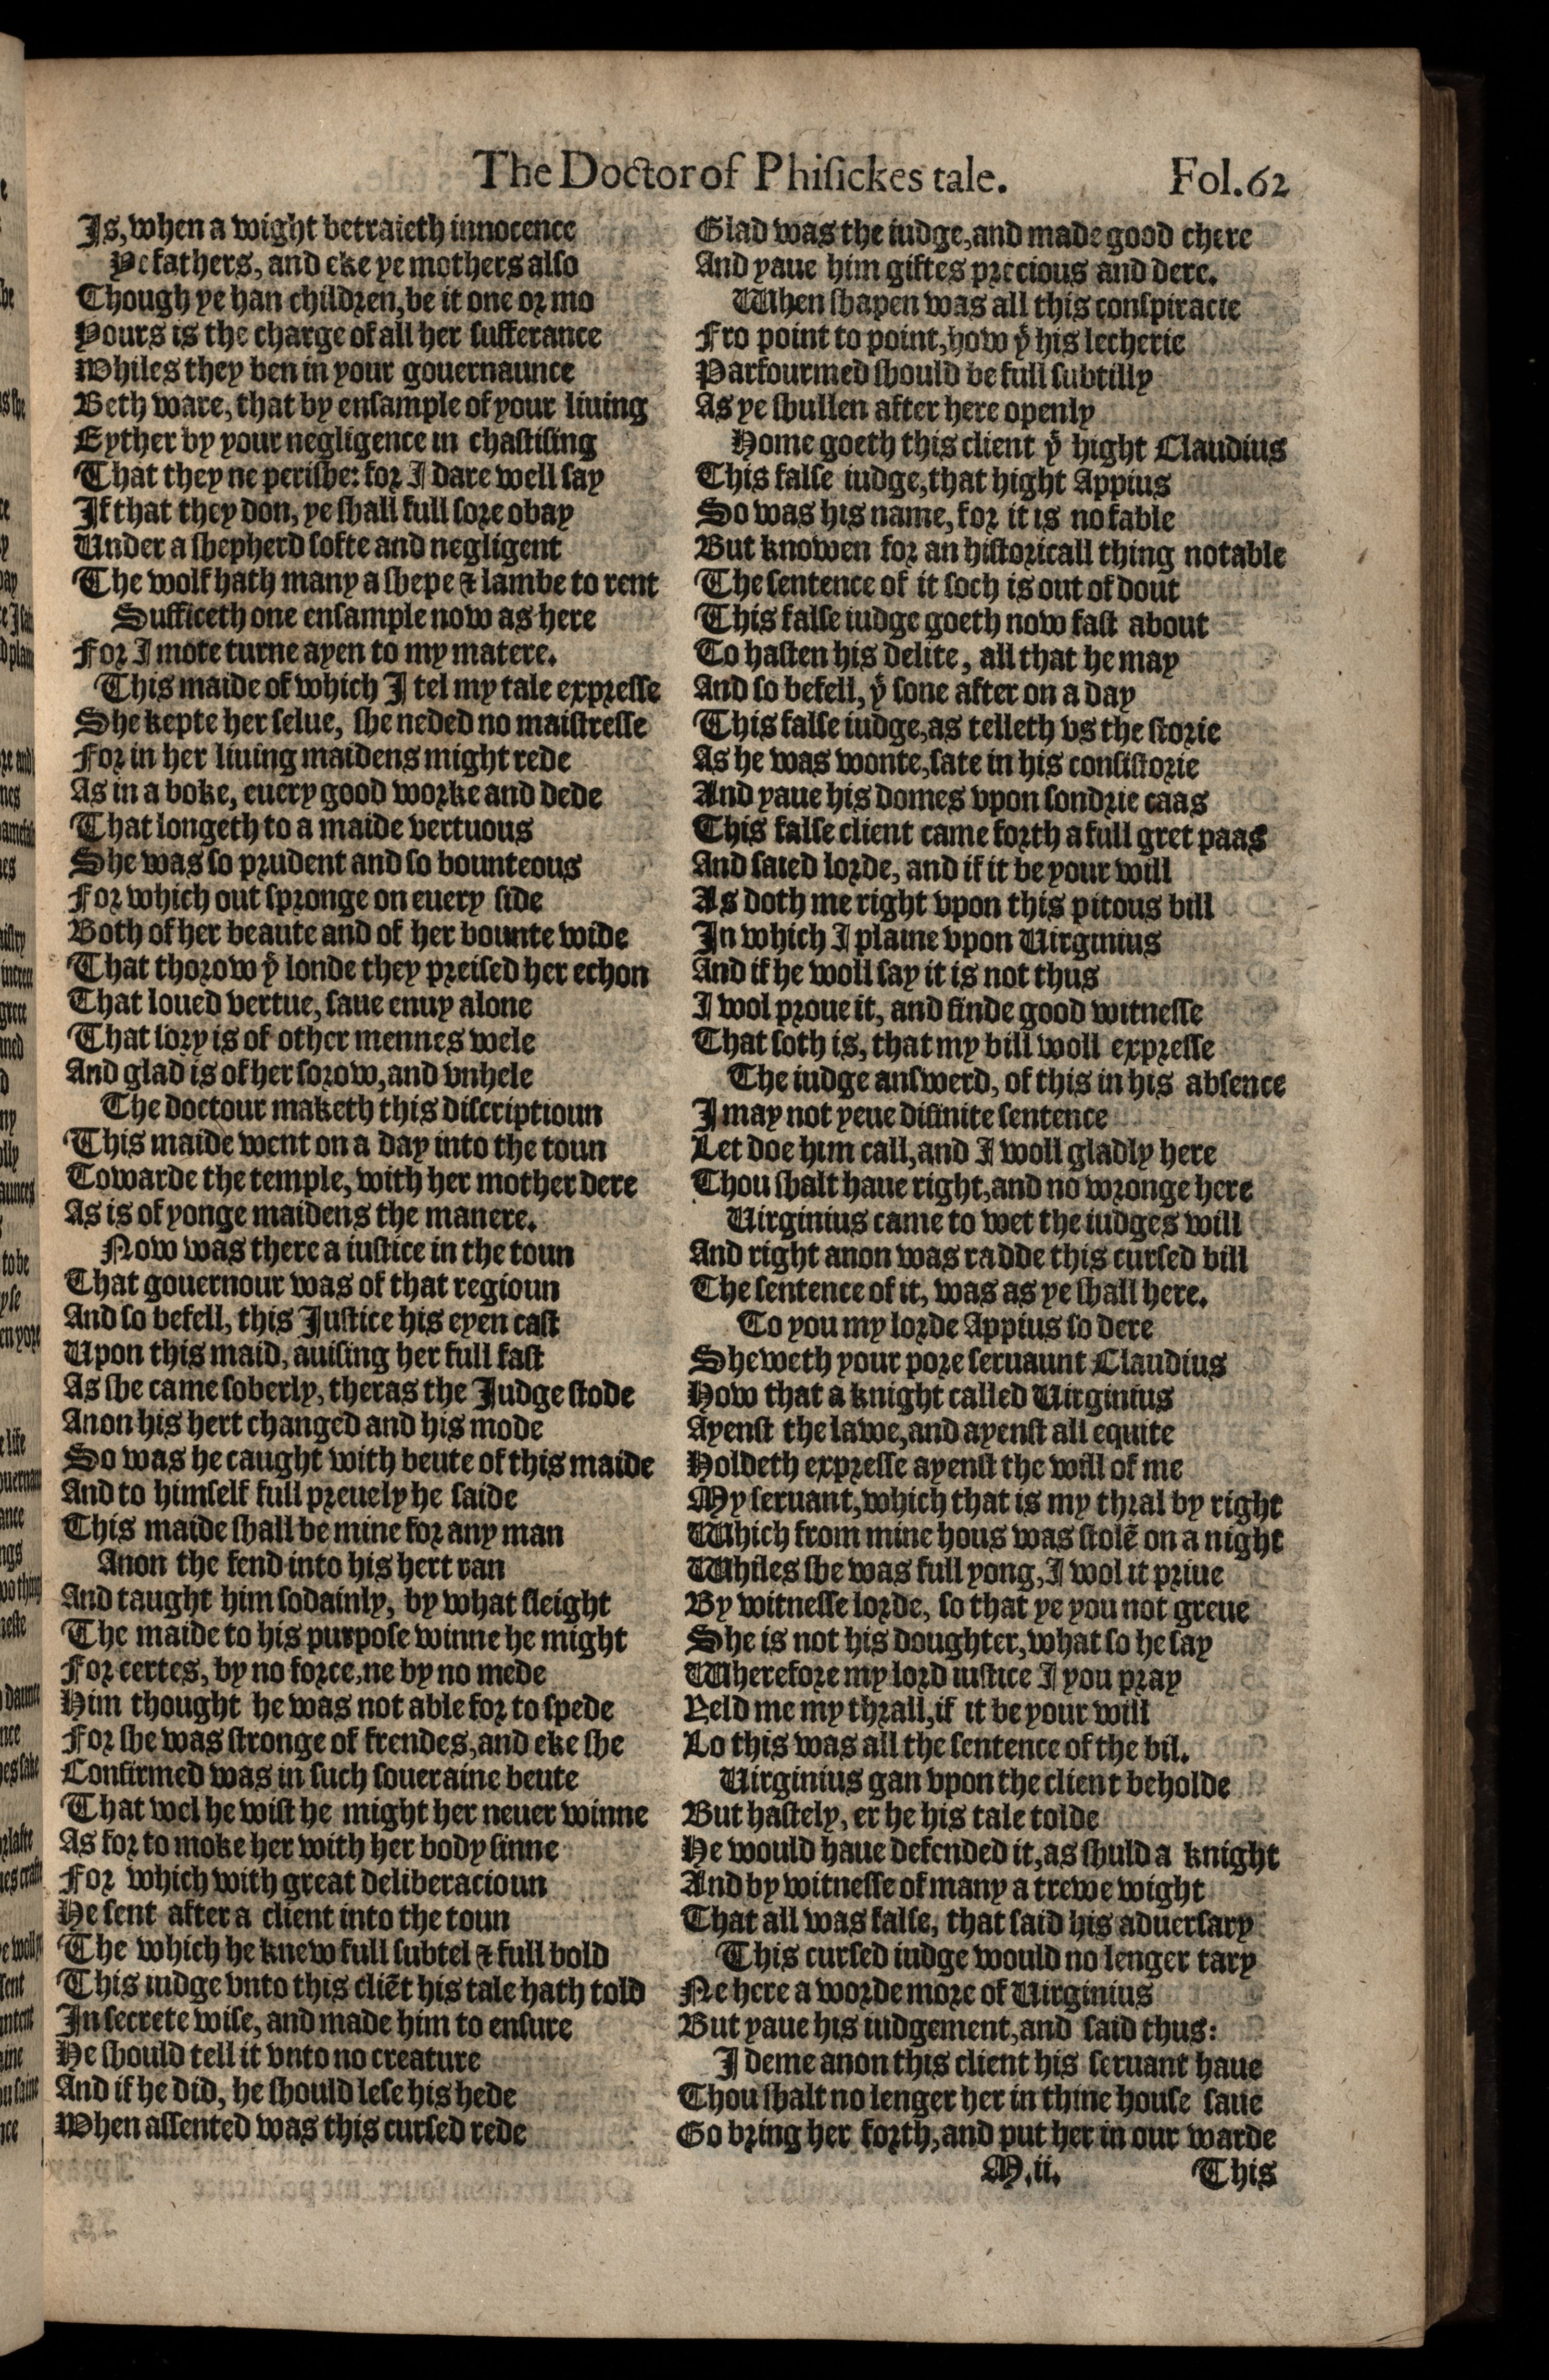 The Doctor of Phiſickes tale. Fol.62
Is, when a wight betraieth innocence
Ye fathers, and eke ye mothers alſo
Though ye han children, be it one or mo
Yours is the charge of all her ſufferance
Whiles they ben in your gouernaunce
Beth ware, that by enſample of your liuing
Eyther by your negligence in chaſtiſing
That they ne periſhe: for I dare well ſay
If that they don, ye ſhall full ſore obay
Under a ſhepherd ſofte and negligent
The wolf hath many a ſhepe & lambe to rent
Sufficeth one enſample now as here
For I mote turne ayen to my matere.
This maide of which I tel my tale expreſſe
She kepte her ſelue, ſhe neded no maiſtreſſe
For in her liuing maidens might rede
As in a boke, euery good worke and dede
That longeth to a maide vertuous
She was ſo prudent and ſo bounteous
For which out ſpronge on euery ſide
Both of her beaute and of her bounte wide
That thorow yͭ londe they preiſed her echon
That loued vertue, ſaue enuy alone
That ſory is of other mennes wele
And glad is of her ſorow, and vnhele
The doctour maketh this diſcriptioun
This maide went on a day into the toun
Towarde the temple, with her mother dere
As is of yonge maidens the manere.
Now was there a iuſtice in the toun
That gouernour was of that regioun
And ſo befell, this Juſtice his eyen caſt
Upon this maid, auiſing her full faſt
As ſhe came ſoberly, theras the Judge ſtode
Anon his hert changed and his mode
So was he caught with beute of this maide
And to himſelf full preuely he ſaide
This maide ſhall be mine for any man
Anon the fend into his hert ran
And taught him ſodainly, by what ſleight
The maide to his purpoſe winne he might
For certes, by no force, ne by no mede
Him thought he was not able for to ſpede
For ſhe was ſtronge of frendes, and eke ſhe
Confirmed was in ſuch ſoueraine beute
That wel he wiſt he might her neuer winne
As for to moke her with her body ſinne
For which with great deliberacioun
He ſent after a client into the toun
The which he knew full ſubtel & full bold
This iudge vnto this cliẽt his tale hath told
In ſecrete wiſe, and made him to enſure
He ſhould tell it vnto no creature
And if he did, he ſhould leſe his hede
When aſſented was this curſed rede
Glad was the iudge, and made good chere
And yaue him giftes precious and dere.
When ſhapen was all this conſpiracie
Fro point to point, how yͭ his lecherie
Parfourmed ſhould be full ſubtilly
As ye ſhullen after here openly
Home goeth this client yͭ hight Claudius
This falſe iudge, that hight Appius
So was his name, for it is no fable
But knowen for an hiſtoricall thing notable
The ſentence of it ſoch is out of dout
This falſe iudge goeth now faſt about
To haſten his delite, all that he may
And ſo befell, yͭ ſone after on a day
This falſe iudge, as telleth vs the ſtorie
As he was wonte, ſate in his conſiſtorie
And yaue his domes vpon ſondrie caas
This falſe client came forth a full gret paas
And ſaied lorde, and if it be your will
As doth me right vpon this pitous bill
In which I plaine vpon Uirginius
And if he woll ſay it is not thus
I wol proue it, and finde good witneſſe
That ſoth is, that my bill woll expreſſe
The iudge anſwerd, of this in his abſence
I may not yeue difinite ſentence
Let doe him call, and I woll gladly here
Thou ſhalt haue right, and no wronge here
Uirginius came to wet the iudges will
And right anon was radde this curſed bill
The ſentence of it, was as ye ſhall here.
To you my lorde Appius ſo dere
Sheweth your pore ſeruaunt Claudius
How that a knight called Uirginius
Ayenſt the lawe, and ayenſt all equite
Holdeth expreſſe ayenſt the will of me
My ſeruant, which that is my thral by right
Which from mine hous was ſtolẽ on a night
Whiles ſhe was full yong, I wol it priue
By witneſſe lorde, ſo that ye you not greue
She is not his doughter, what ſo he ſay
Wherefore my lord iuſtice I you pray
Yeld me my thrall, if it be your will
Lo this was all the ſentence of the bil.
Uirginius gan vpon the client beholde
But haſtely, er he his tale tolde
He would haue defended it, as ſhuld a knight
And by witneſſe of many a trewe wight
That all was falſe, that ſaid his aduerſary
This curſed iudge would no lenger tary
Ne here a worde more of Uirginius
But yaue his iudgement, and ſaid thus:
I deme anon this client his ſeruant haue
Thou ſhalt no lenger her in thine houſe ſaue
Go bring her forth, and put her in our warde
M.ii. This